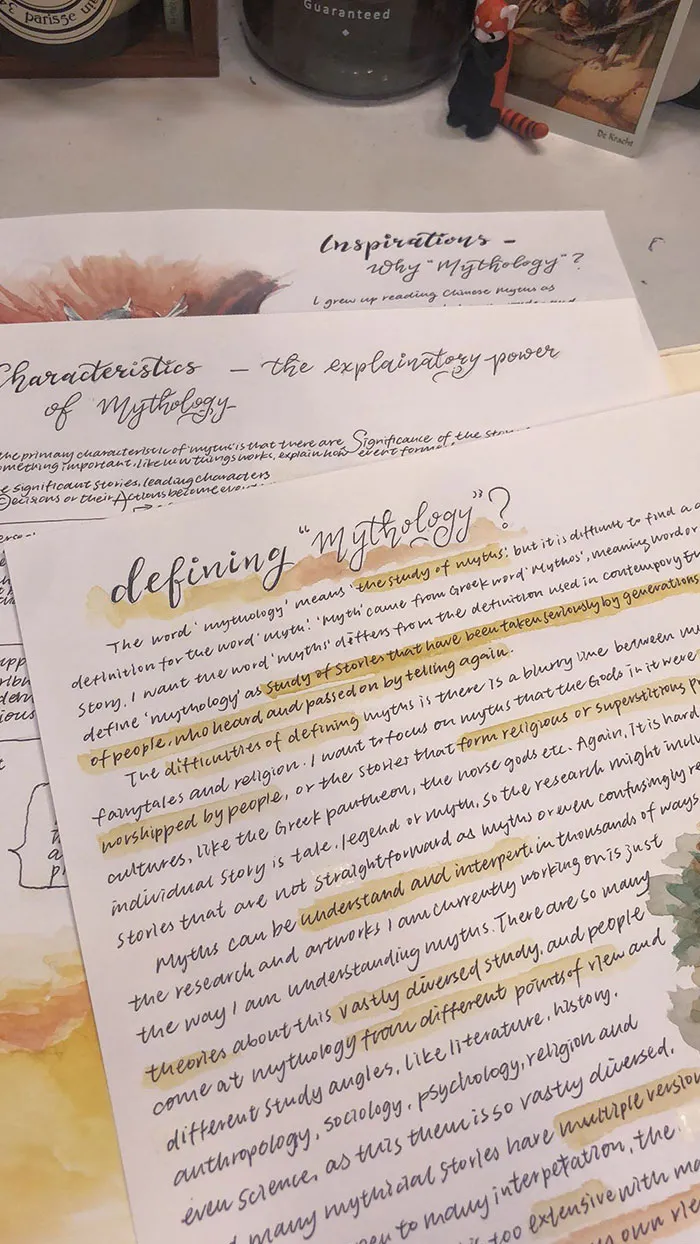 parisse
Guaranteed
De Kracht
Inspirations –
Why "Mythology"?
I grew up reading Chinese Myths as
Characteristics – the explainatory power
of Mythology
the primary characteristic of 'myths' is that there are Significance of the
something important, like how things works, explain how event
significant stories, leading characters
Decisions or their Actions become
defining "Mythology"?
The word 'mythology' means 'the study of myths', but it is difficult to find a
definition for the word 'myth'. 'Myth' came from Greek word 'Mythos', meaning word or
story. I want the word 'myths' differs from the definition used in contemporary
define 'mythology' as study of stories that have been taken seriously by generations
of people, who heard and passed on by telling again.
The difficulties of defining myths is there is a blurry line between
fairytales and religion. I want to focus on myths that the Gods in it were
worshipped by people, or the stories that form religious or superstitious
cultures, like the Greek pantheon, the norse gods etc. Again, it is hard
individual story is tale, legend or myth, so the research might
stories that are not straightforward as myths or even confusingly
Myths can be understand and interpert in thousands of ways
the research and artworks I am currently working on is just
the way I am understanding myths. There are so many
theories about this vastly diversed study, and people
come at mythology from different points of view and
different study angles, like literature, history,
anthropology, sociology, psychology, religion and
even science, as this them is so vastly diversed,
many mythicial stories have multiple
to many interpetation, the
too extensive with
own